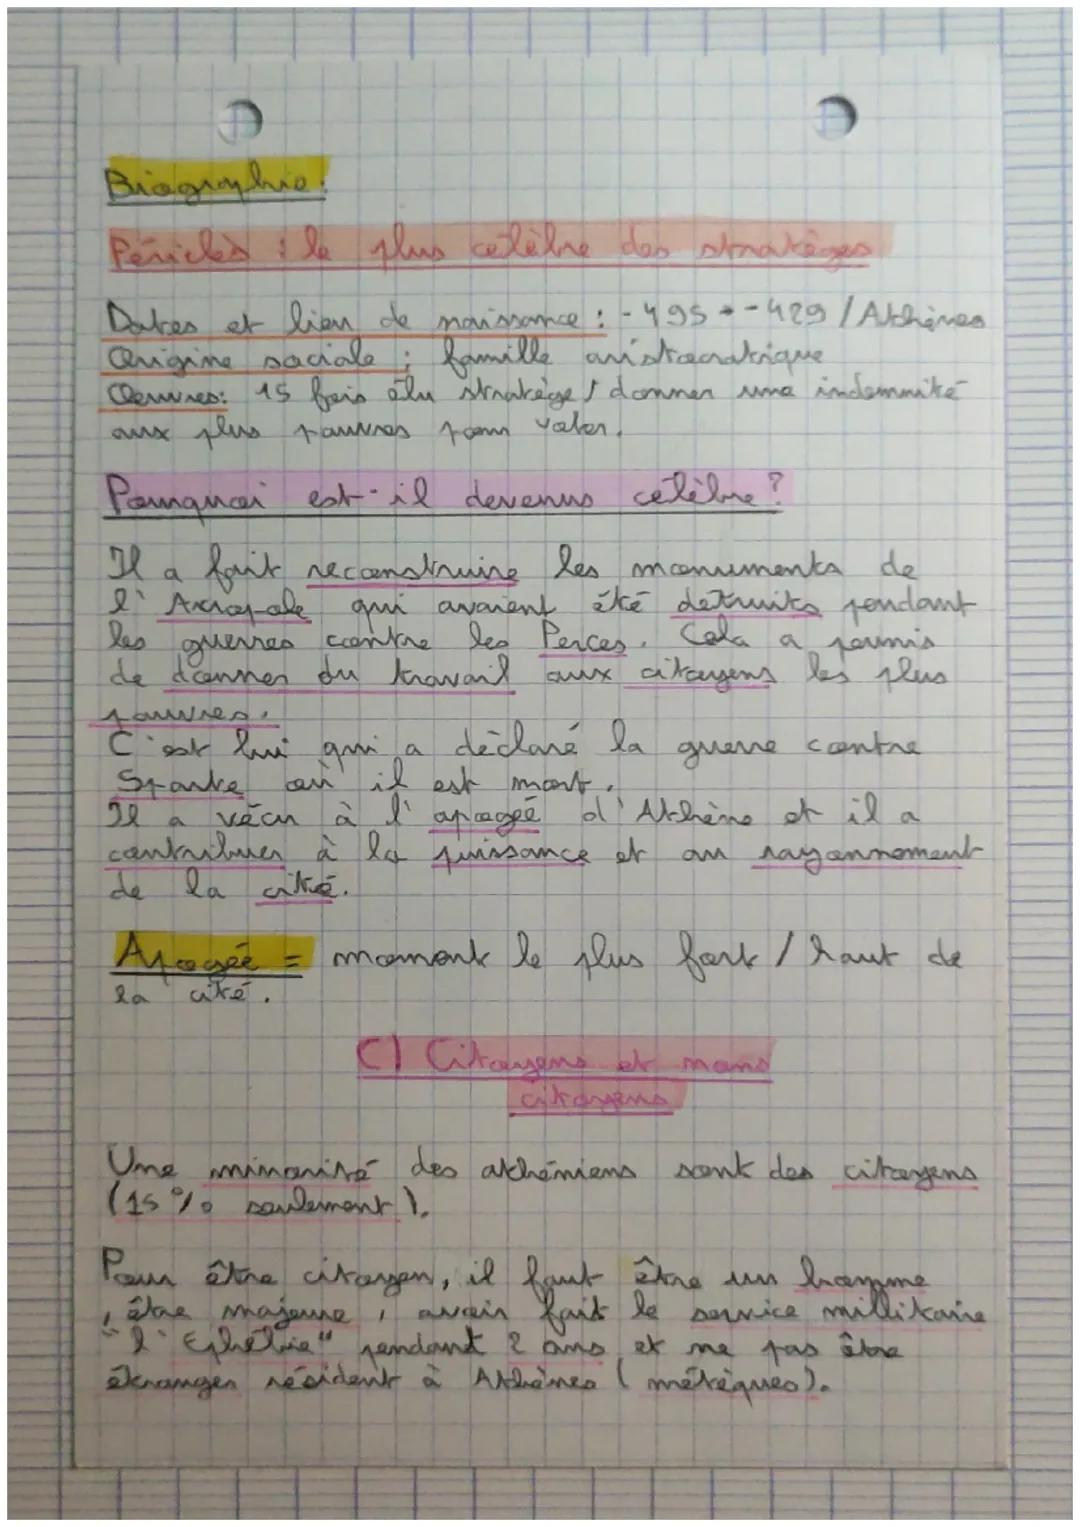 Biographie:
Périclès : le plus célèbre des stratèges
Dates et lieu de naissance : -495 → -429 / Athènes
Origine sociale : famille aristocratique
Oeuvres: 15 fois élu stratège / donner une indemnité
aux plus pauvres pour voter.
Pourquoi est-il devenus célèbre ?
Il a fait reconstruire les monuments de
l'Acropole qui avaient été détruits pendant
les guerres contre les Perces. Cela a permis
de donner du travail aux citoyens les plus
pauvres.
C'est lui qui a déclaré la guerre contre
Sparte où il est mort.
Il a vécu à l'apogée d'Athène et il a
contribuer à la puissance et au rayonnement
de la cité.
Apogée = moment le plus fort / haut de
la cité.
C) Citoyens et nons
citoyens
Une minorité des athéniens sont des citoyens
(15 % seulement).
Pour être citoyen, il faut être un homme
, être majeure, avoir fait le service millitaire
"l'Ephébie" pendant 2 ans et ne pas être
étranger résident à Athènes (métèques).